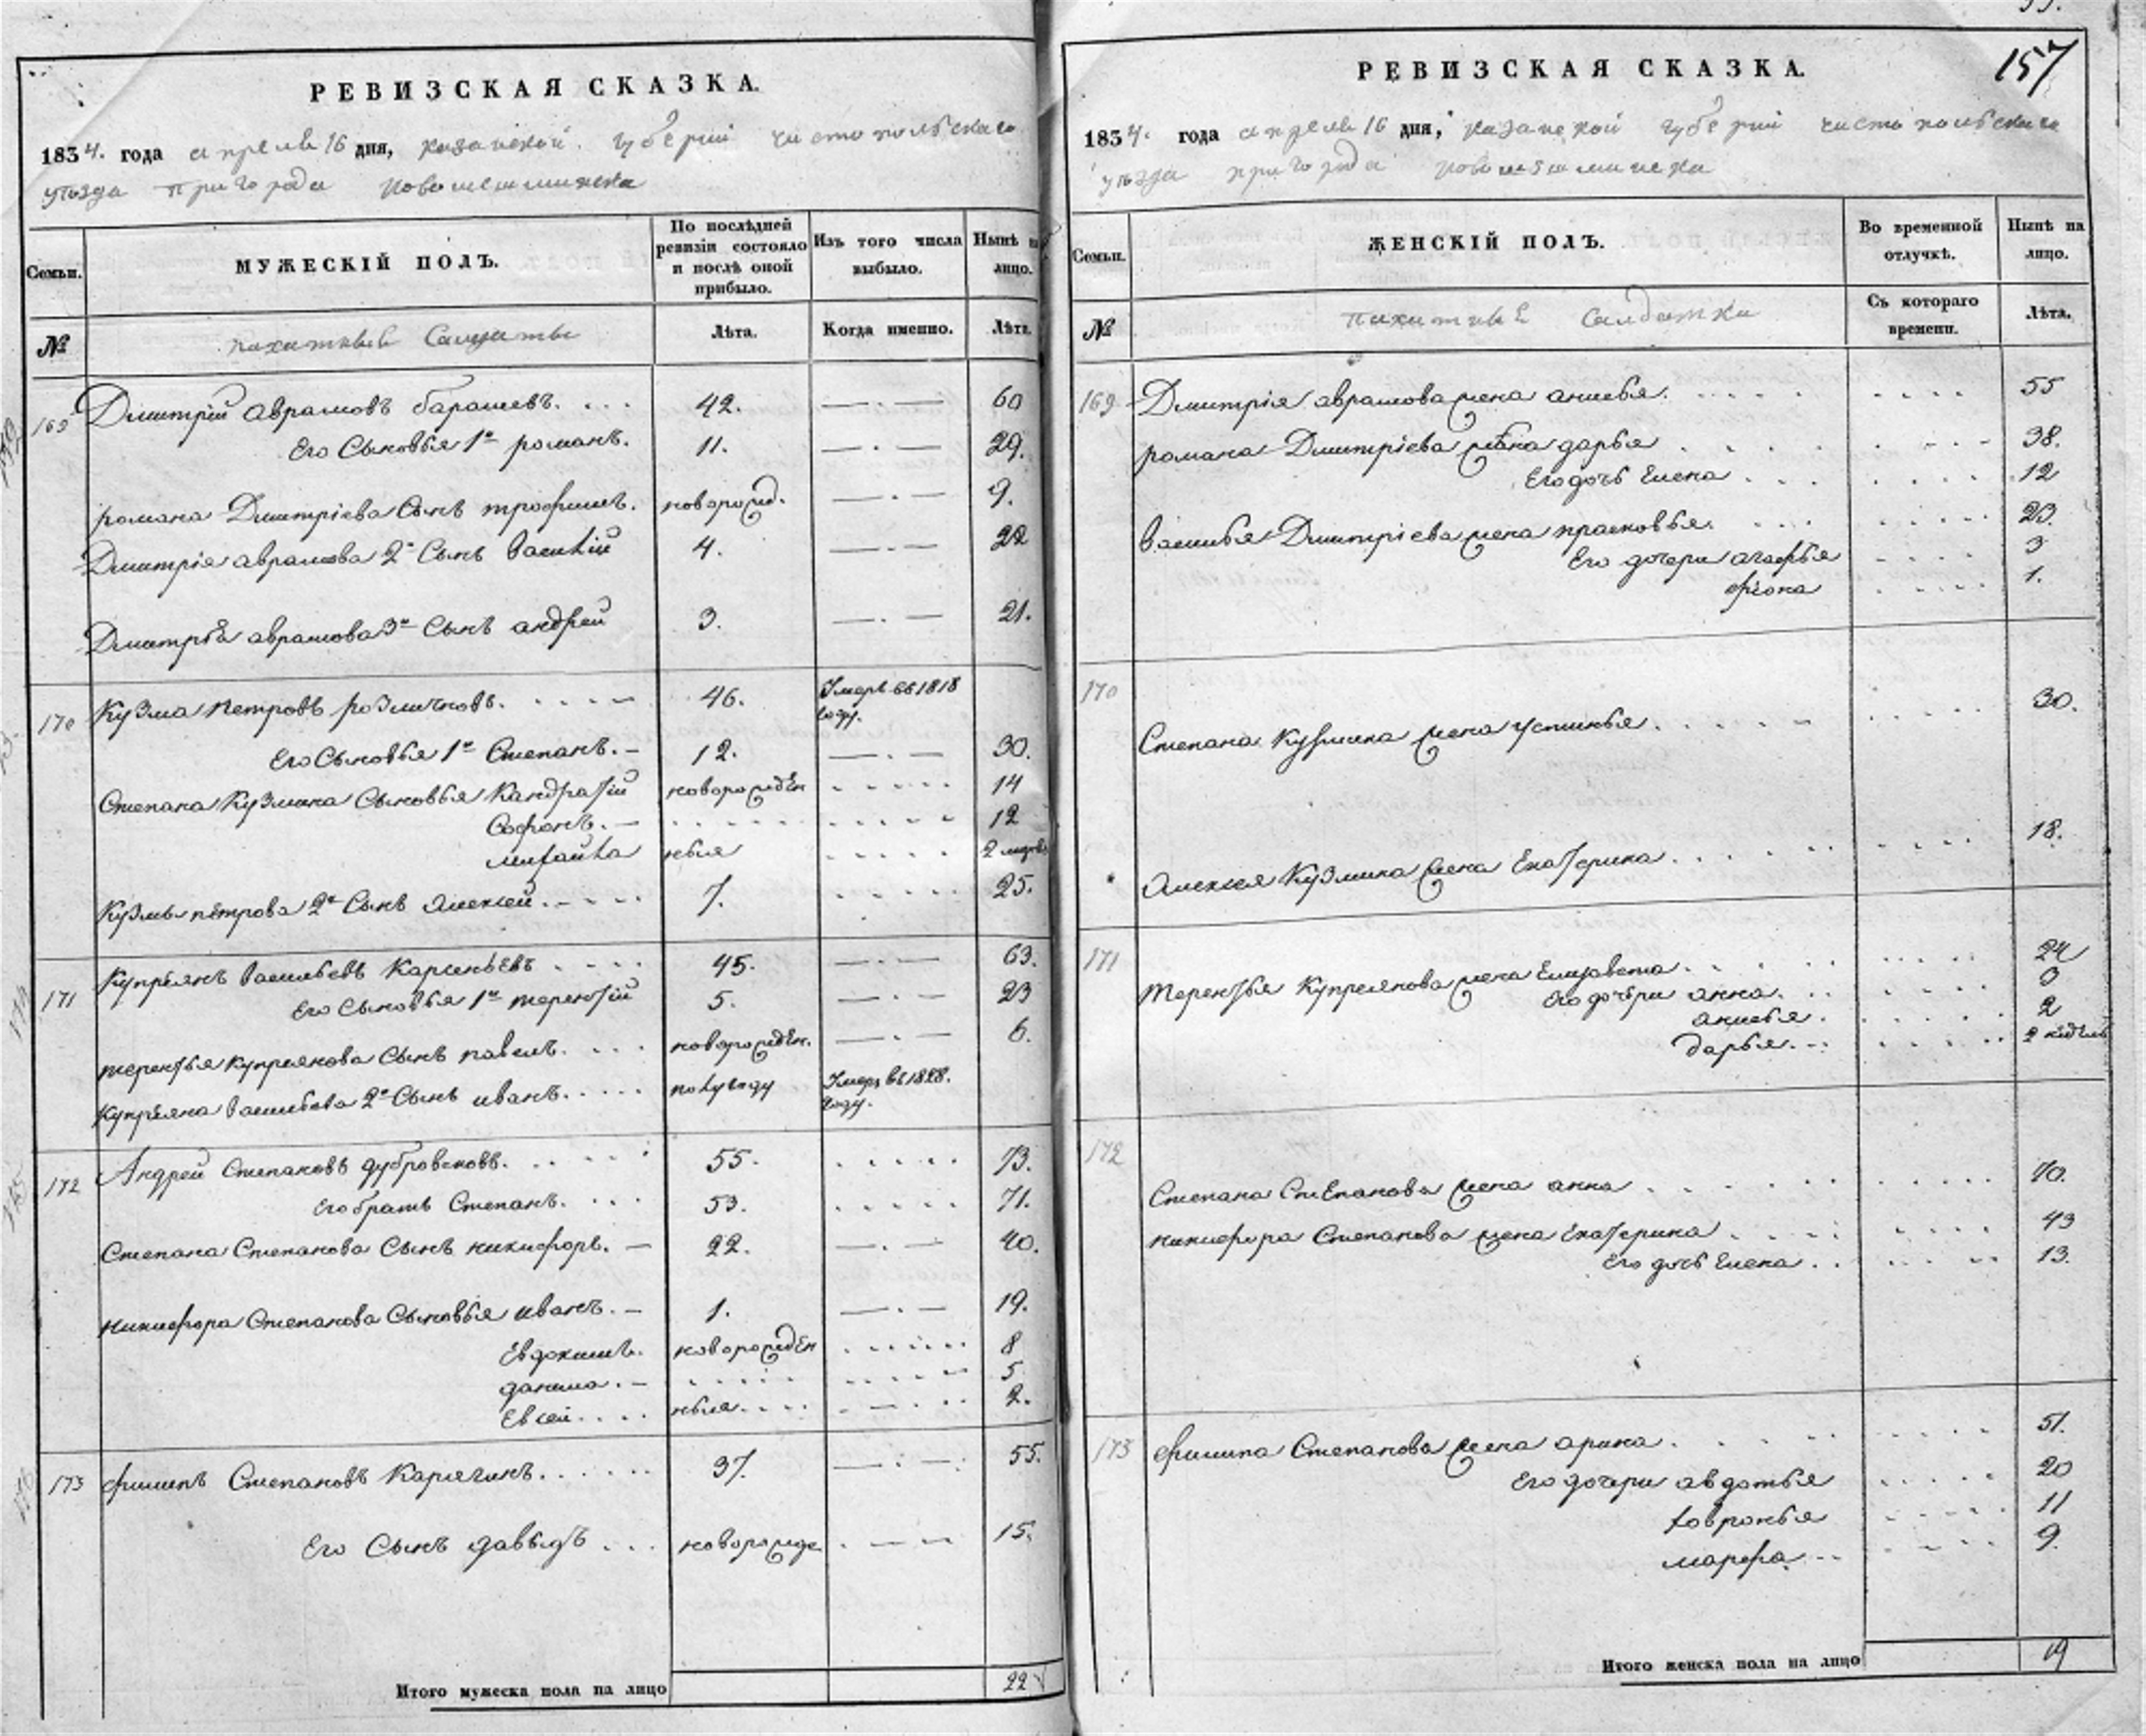 157
РЕВИЗСКАЯ СКАЗКА.
1834. года апреля 16 дня, казанской губернии чистопольскаго
уѣзда пригорода новошешминска
Семьи.
МУЖЕСКІЙ ПОЛЪ.
По послѣдней ревизіи состояло и послѣ оной прибыло.
Изъ того числа выбыло.
Нынѣ на лицо.
№
пахатныя Салдаты
Лѣта.
Когда именно.
Лѣта.
169 Дмитрій аврамовъ барашевъ. 42. 60
Его Сыновья 1й романъ. 11. 29.
романа Дмитріева Сынъ трофимъ. новорожд. 9.
Дмитрія аврамова 2й Сынъ василій 4. 22
Дмитрѣя аврамова 3й Сынъ андрей 3. 21.
170 Кузма петровъ 46. Умеръ въ 1818 году.
Его Сыновья 1й Степанъ. 12. 30.
Степана Кузмина Сыновья Кандратій новорожден 14
Софонъ. 12
михайла ныя 2 мѣсяцовъ
Кузмы петрова 2й Сынъ алексей. 7. 25.
171 Купреянъ васильевъ 45. 63.
Его Сыновья 1й терентій 5. 23
терентья купреянова Сынъ павелъ. новорожден. 6.
Купреяна васильева 2й Сынъ иванъ. полугоду Умеръ въ 1828. году.
172 Андрей Степановъ дубровсковъ. 55. 73.
Его братъ Степанъ. 53. 71.
Степана Степанова Сынъ никифоръ. 22. 40.
никифора Степанова Сыновья иванъ. 1. 19.
Евдокимъ. новорожден 8
данила. 5
Евсей ныя 2.
173 филипъ Степановъ Карягинъ. 37. 55.
Его Сынъ давыдъ новорожде 15.
Итого мужеска пола на лицо 22
РЕВИЗСКАЯ СКАЗКА.
1834. года апреля 16 дня, казанской губерніи чистопольскаго
уѣзда пригорода новошешминска
Семьи.
ЖЕНСКІЙ ПОЛЪ.
Во временной отлучкѣ.
Нынѣ на лицо.
№
пахатныя Салдатки
Съ котораго времени.
Лѣта.
169 Дмитрія аврамова жена анисья. 55
романа Дмитріева жена дарья 38.
Его дочь Елена 12
василья Дмитріева жена прасковья. 23.
Его дочери агафья 3
фіона 1.
170
Степана Кузмина жена устинья. 30.
Алексея Кузмина жена Екатерина. 18.
171 терентья Купреянова жена Елизавета. 24
Его дочери анна. 3
анисья. 2
дарья. 2 недель
172
Степана Степанова жена анна 70.
никифора Степанова жена Екатерина 43
Его дочь Елена. 13.
173 филипа Степанова жена арина. 51.
Его дочери авдотья 20
ховронья 11
марфа 9.
Итого женска пола на лицо 19